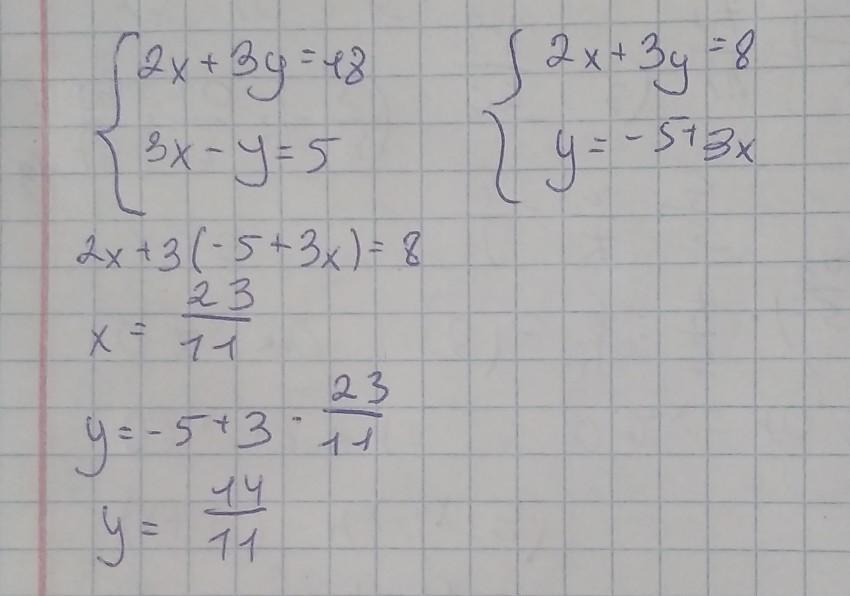 2x+3y=18
3x-y=5
2x+3y=8
y=-5+3x
2x+3(-5+3x)=8
x = 23/11
y=-5+3·23/11
y= 14/11